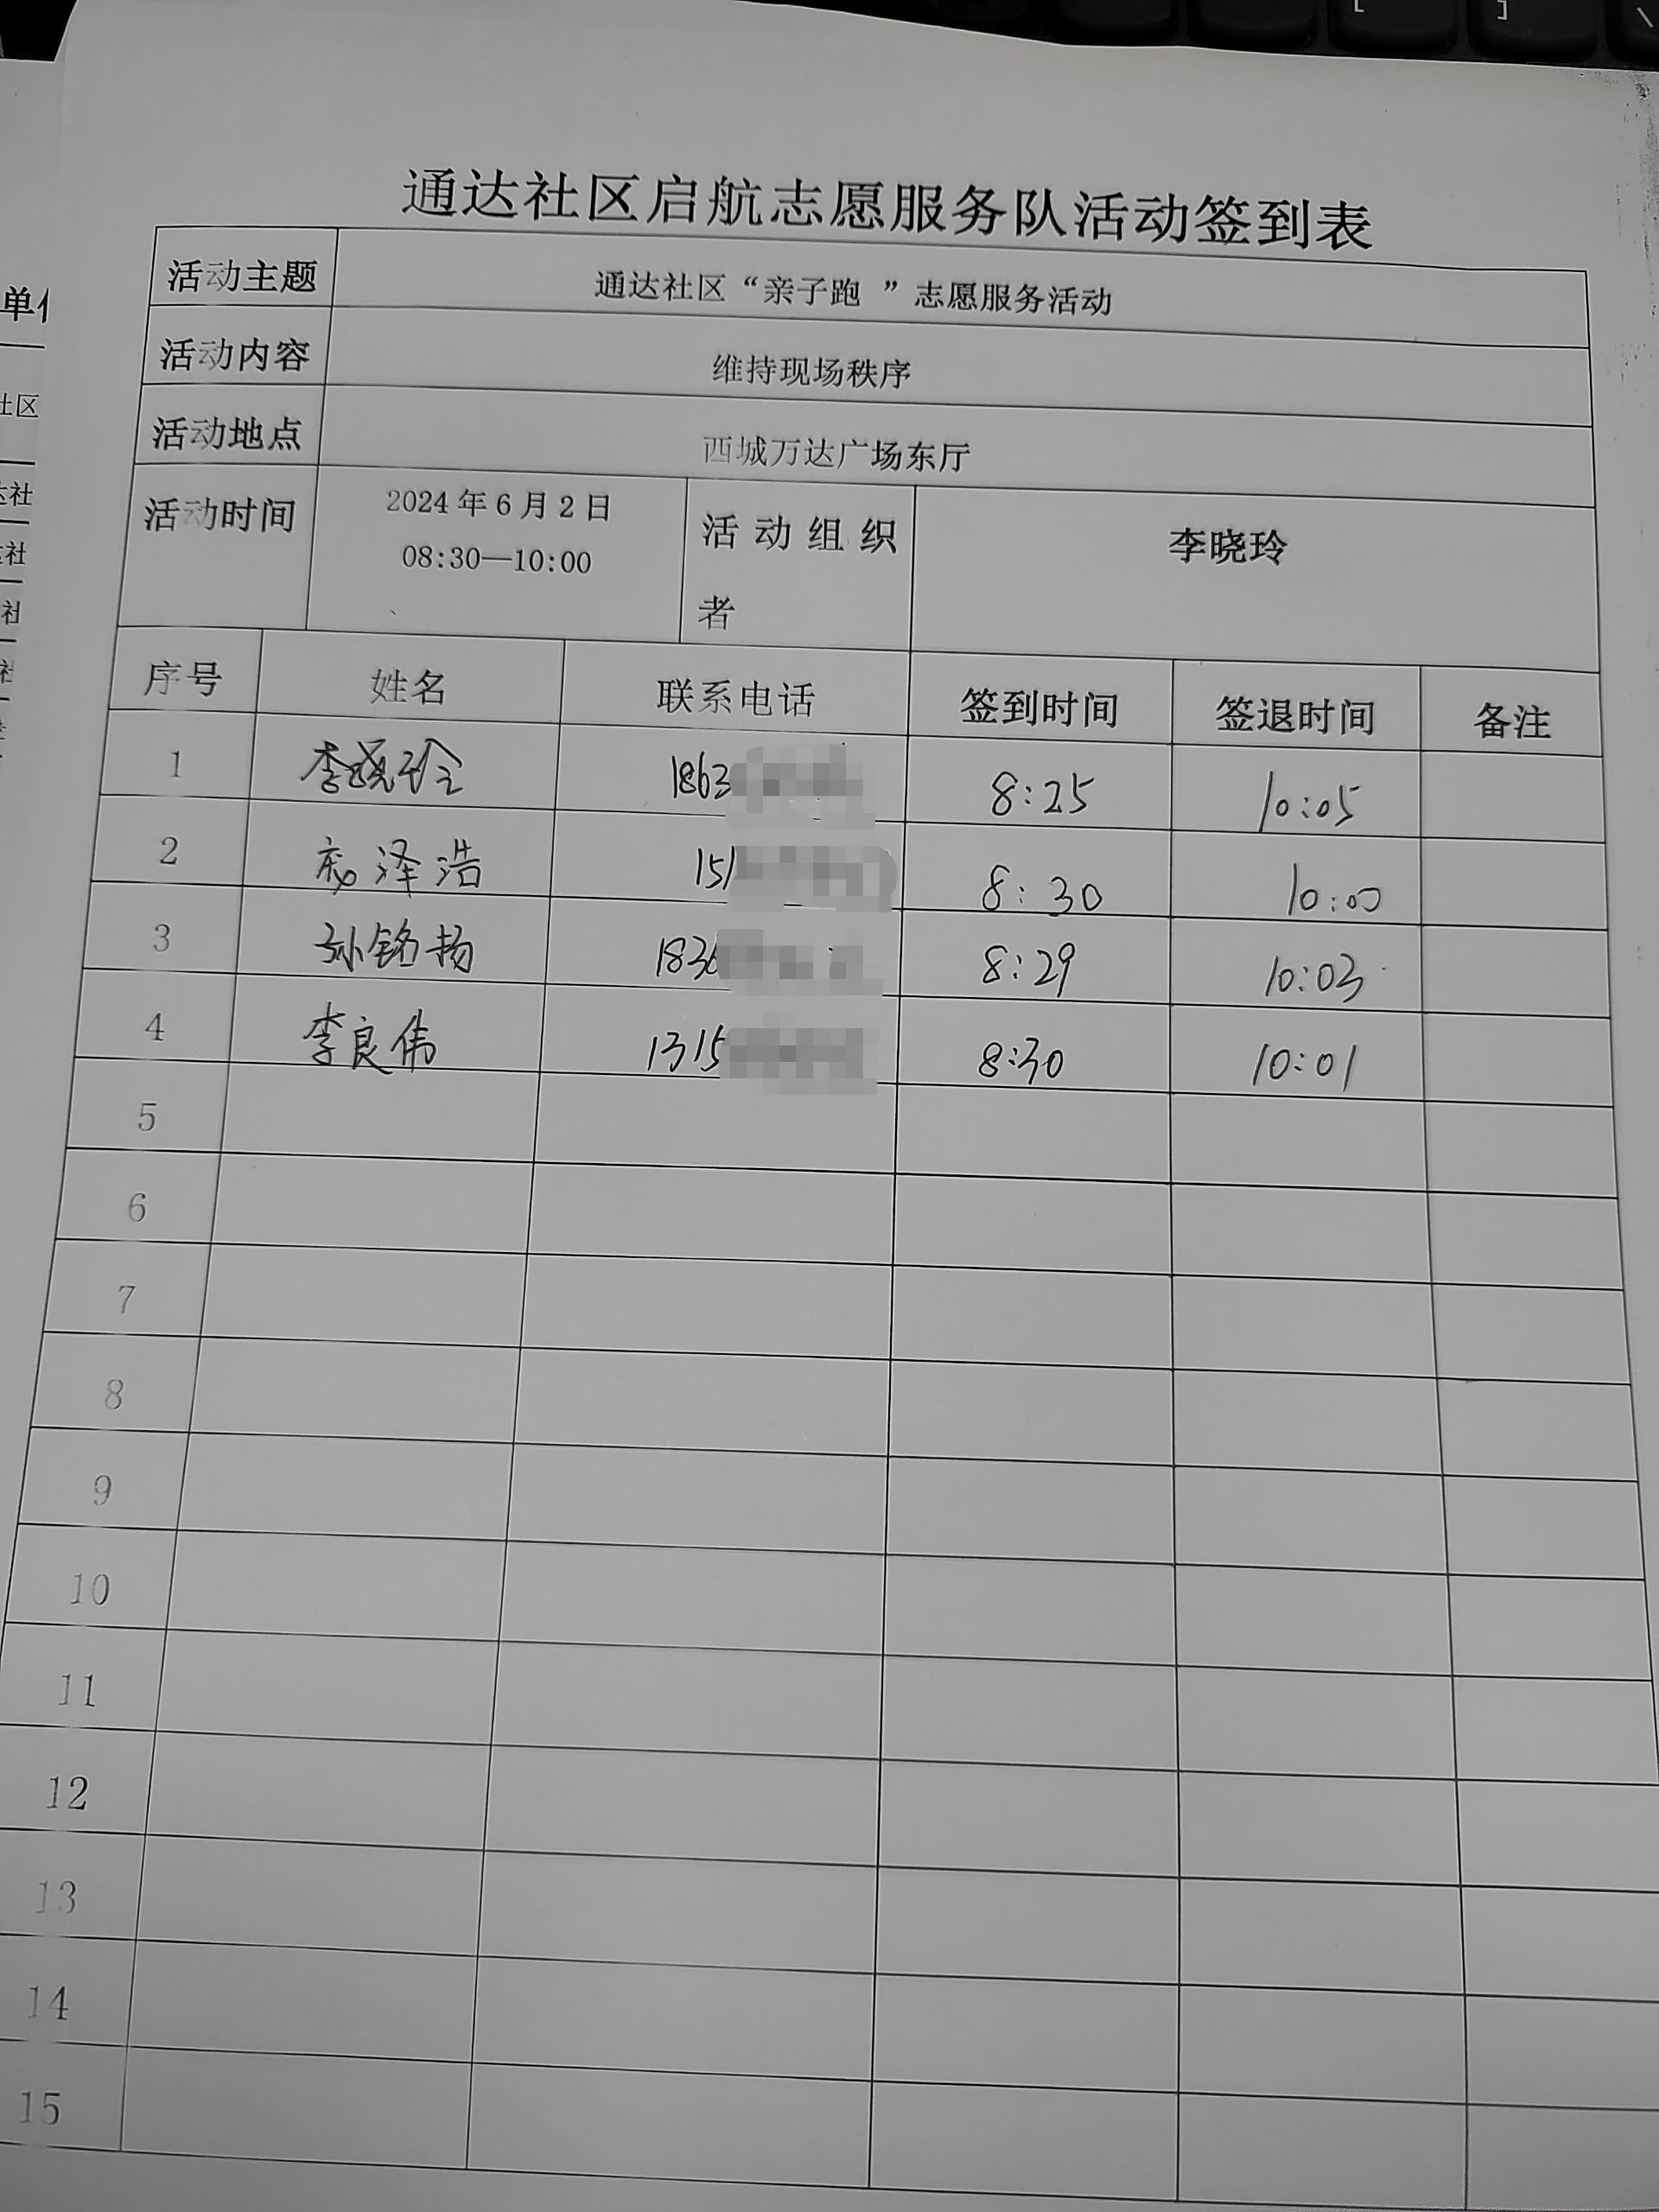 通达社区启航志愿服务队活动签到表
活动主题 通达社区“亲子跑 ”志愿服务活动
活动内容 维持现场秩序
活动地点 西城万达广场东厅
活动时间 2024 年 6 月 2 日 活动组织 李晓玲
08:30—10:00
者
序号 姓名 联系电话 签到时间 签退时间 备注
1 李晓玲 1863 8:25 10:05
2 泽浩 151 8:30 10:00
3 孙铭扬 1836 8:29 10:03
4 李良伟 1315 8:30 10:01
5
6
7
8
9
10
11
12
13
14
15
单
社区
社
社
社
[
]
\